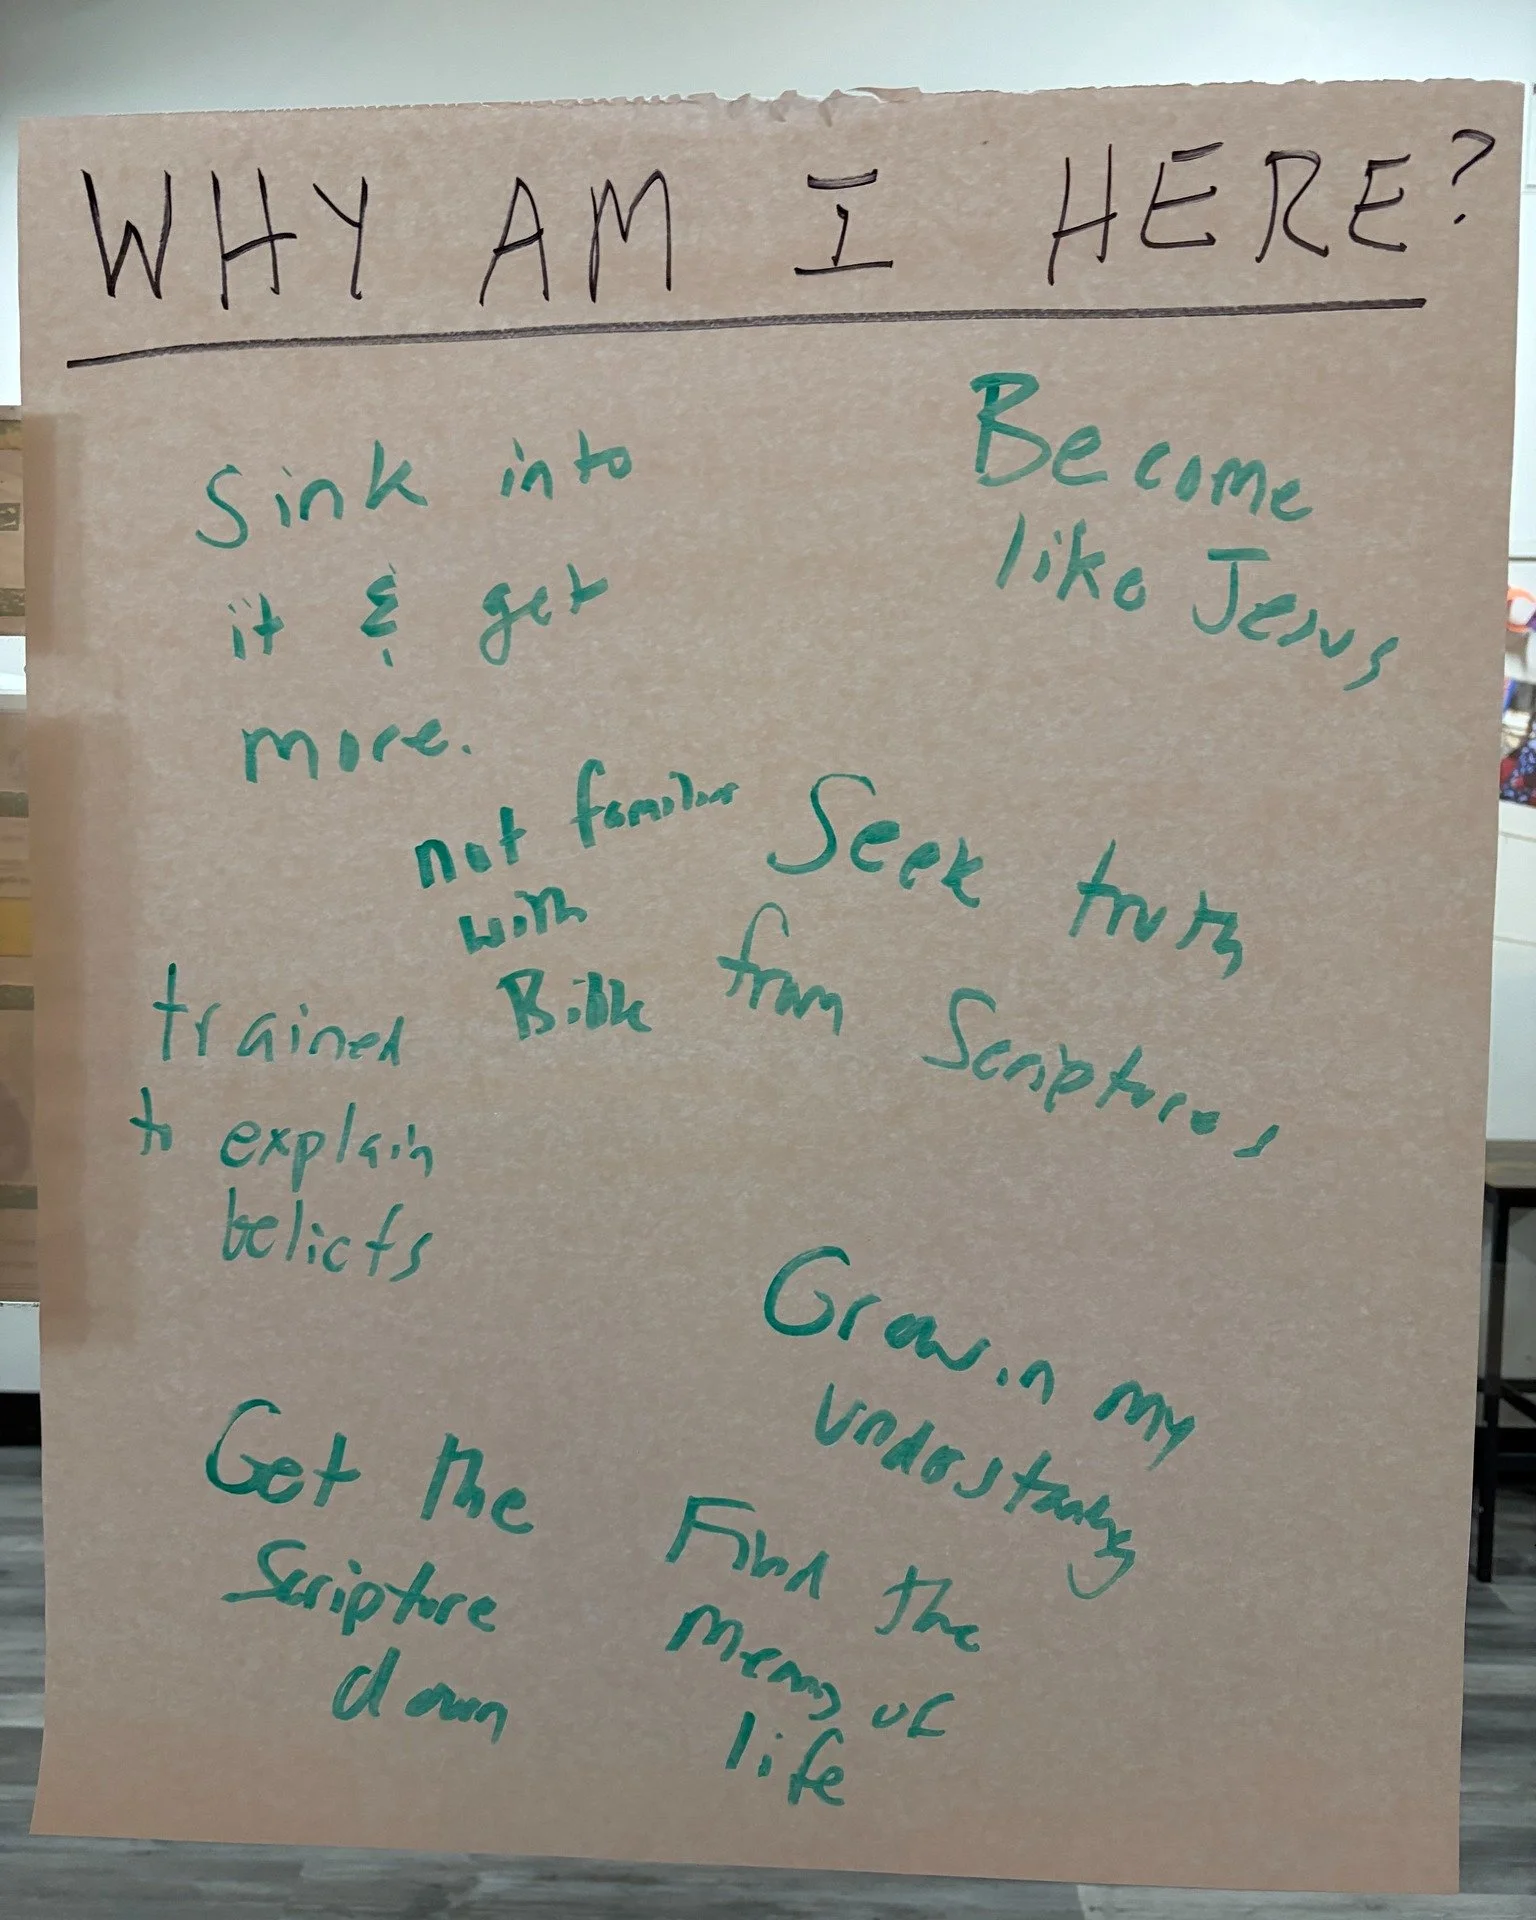 WHY AM I HERE?
Sink into
it & get
more.
Become
like Jesus
not familiar
with
Bible
Seek truth
from Scriptures
trained
to explain
beliefs
Grow in my
understanding
Get the
Scripture
down
Find the
meaning of
life